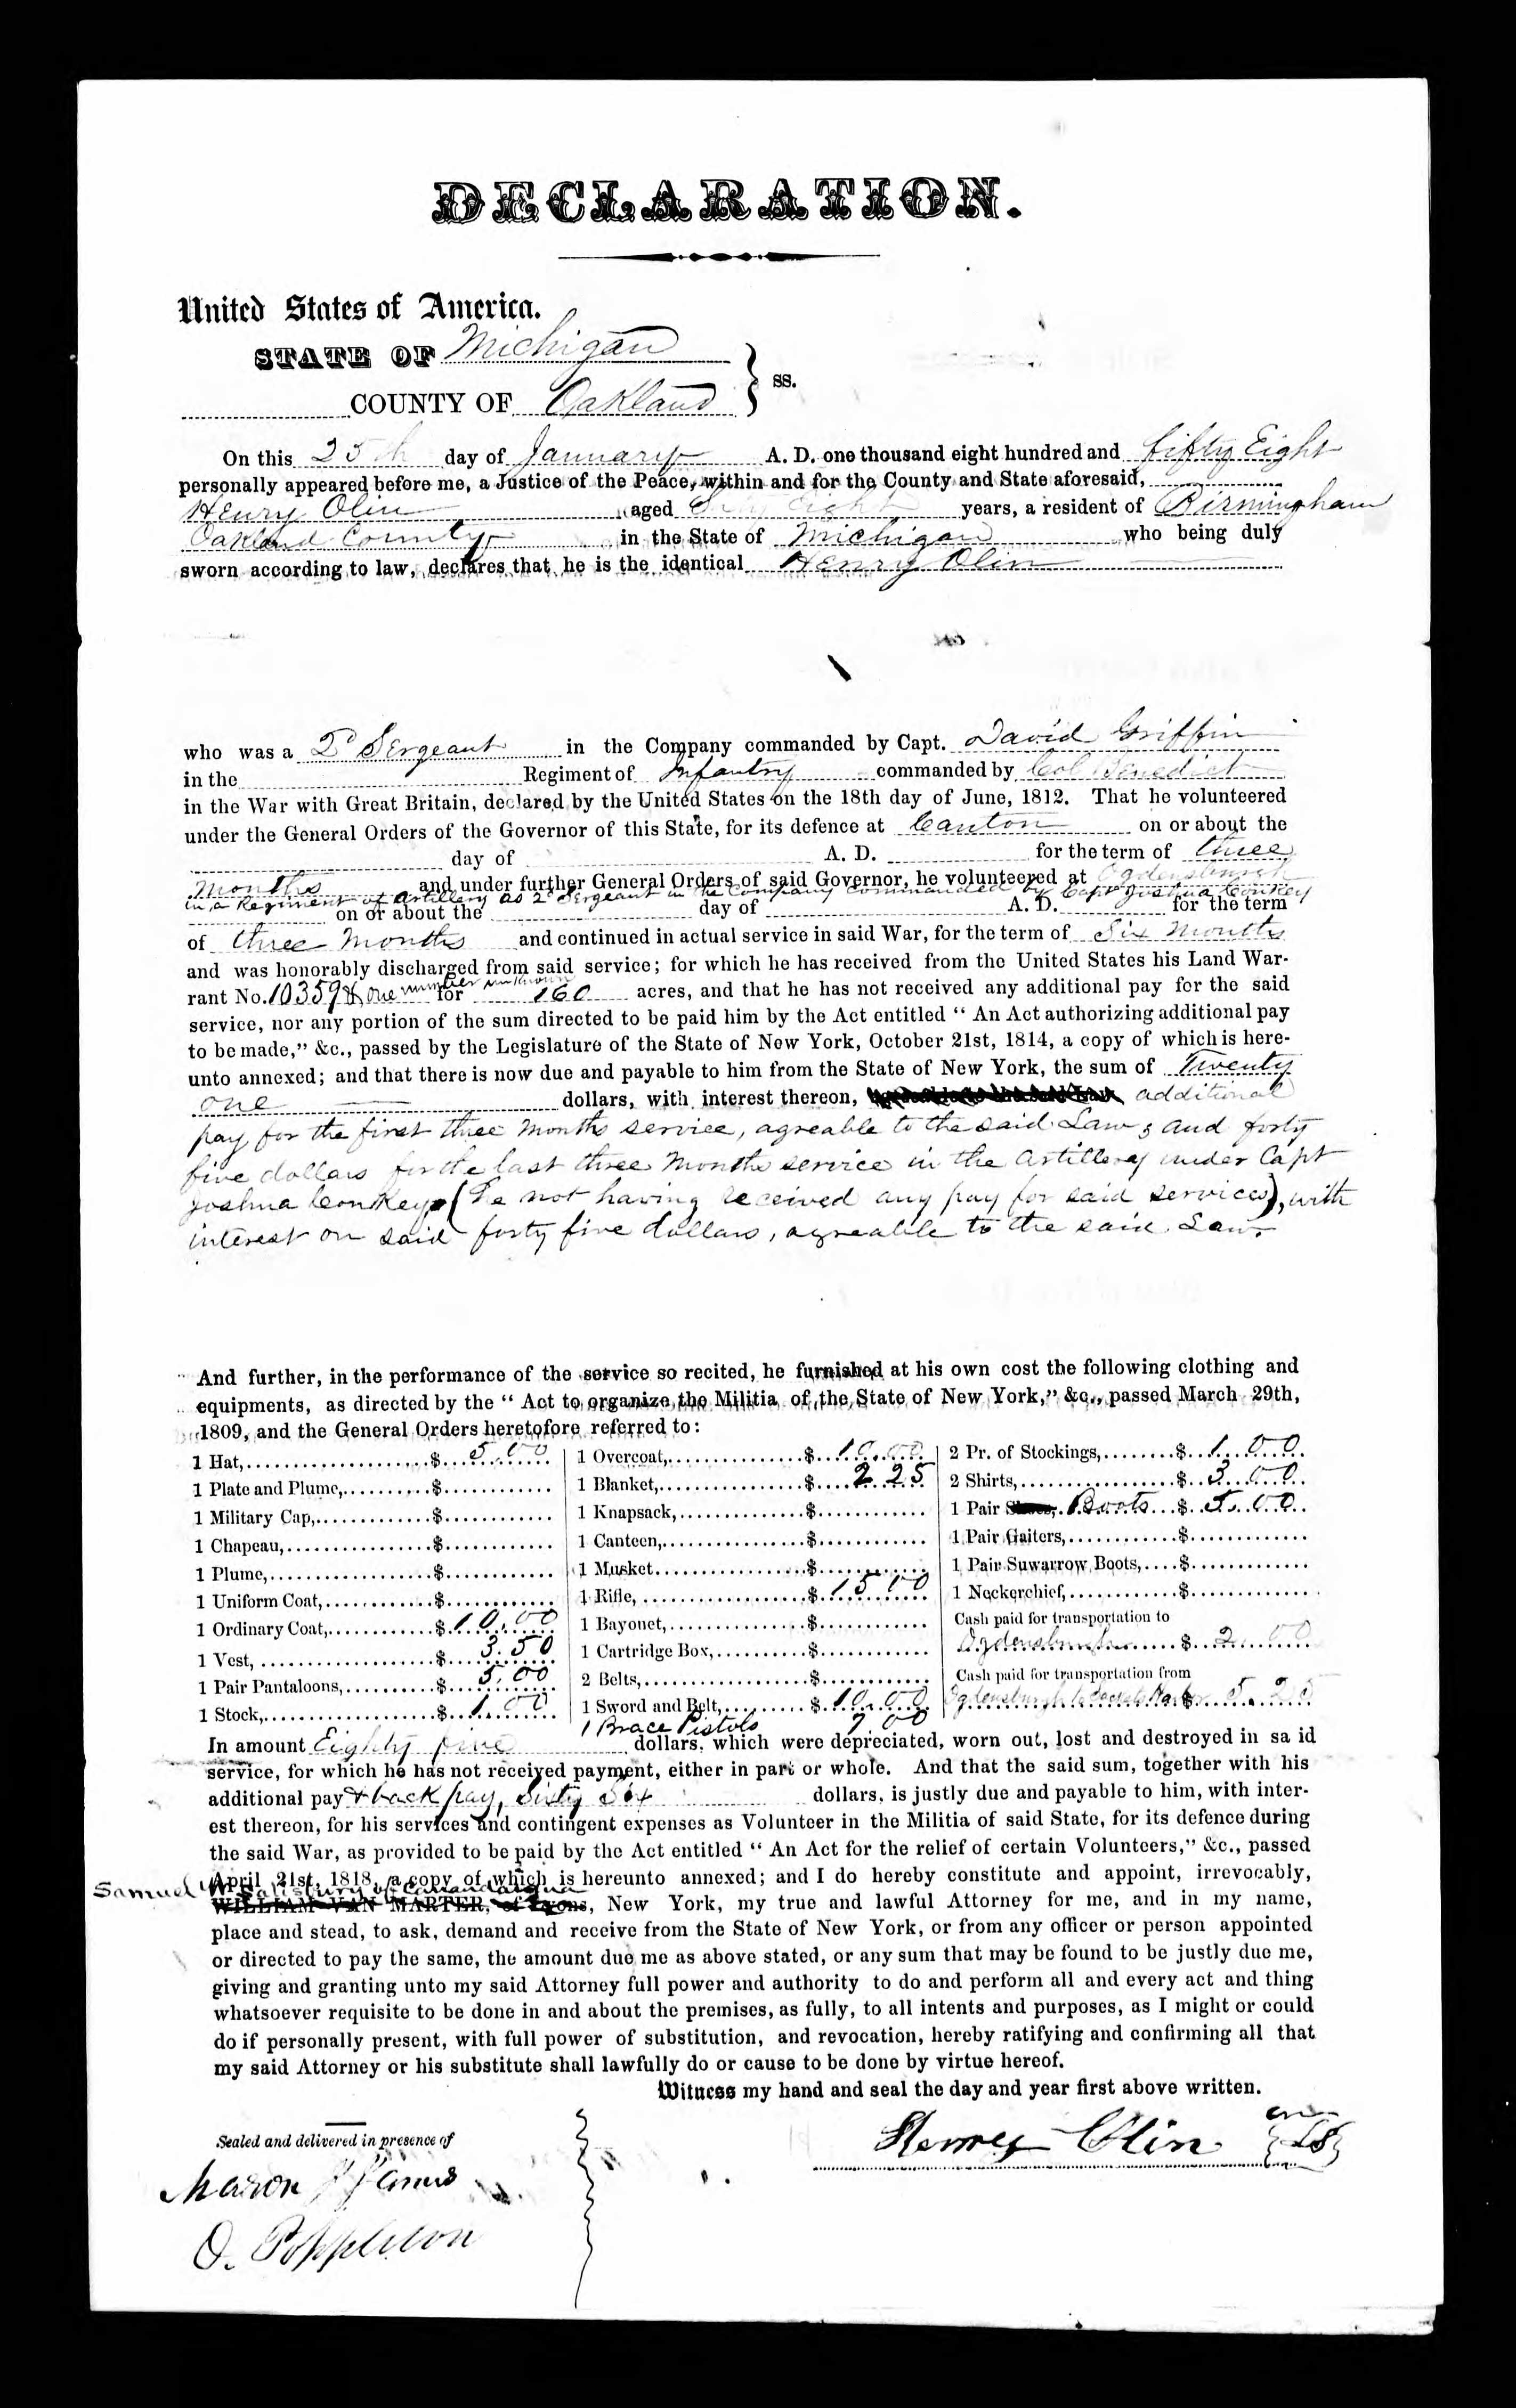 DECLARATION.
United States of America.
STATE OF Michigan
COUNTY OF Oakland } ss.
On this 25th day of January A. D. one thousand eight hundred and fifty Eight
personally appeared before me, a Justice of the Peace, within and for the County and State aforesaid,
Henry Olin aged Sixty Eight years, a resident of Birmingham
Oakland County in the State of Michigan who being duly
sworn according to law, declares that he is the identical Henry Olin
who was a 2d Sergeant in the Company commanded by Capt. David Griffin
in the Regiment of Infantry commanded by Col Benedict
in the War with Great Britain, declared by the United States on the 18th day of June, 1812. That he volunteered
under the General Orders of the Governor of this State, for its defence at Canton on or about the
day of A. D. for the term of three
months and under further General Orders of said Governor, he volunteered at Ogdensburgh
in a Regiment of Artillery as 2d Sergeant in the Company commanded by Capt Joshua Conkey
on or about the day of A. D. for the term
of three months and continued in actual service in said War, for the term of Six Months
and was honorably discharged from said service; for which he has received from the United States his Land War-
rant No. 10359 & one number unknown for 160 acres, and that he has not received any additional pay for the said
service, nor any portion of the sum directed to be paid him by the Act entitled " An Act authorizing additional pay
to be made," &c., passed by the Legislature of the State of New York, October 21st, 1814, a copy of which is here-
unto annexed; and that there is now due and payable to him from the State of New York, the sum of Twenty
one dollars, with interest thereon, additional
pay for the first three months service, agreable to the said Law, and forty
five dollars for the last three Months service in the Artillery under Capt
Joshua Conkey (he not having received any pay for said services), with
interest on said forty five dollars, agreable to the said Law.
And further, in the performance of the service so recited, he furnished at his own cost the following clothing and
equipments, as directed by the " Act to organize the Militia of the State of New York," &c., passed March 29th,
1809, and the General Orders heretofore referred to:
1 Hat, $ 5.00
1 Plate and Plume, $
1 Military Cap, $
1 Chapeau, $
1 Plume, $
1 Uniform Coat, $
1 Ordinary Coat, $ 10.00
1 Vest, $ 3.50
1 Pair Pantaloons, $ 5.00
1 Stock, $ 1.00
1 Overcoat, $ 10.00
1 Blanket, $ 2 25
1 Knapsack, $
1 Canteen, $
1 Musket $
1 Rifle, $ 15 00
1 Bayonet, $
1 Cartridge Box, $
2 Belts, $
1 Sword and Belt, $ 10.00
1 Brace Pistols 7 00
2 Pr. of Stockings, $ 1.00
2 Shirts, $ 3.00
1 Pair Shoes, Boots $ 5.00
1 Pair Gaiters, $
1 Pair Suwarrow Boots, $
1 Neckerchief, $
Cash paid for transportation to
Ogdensburgh $ 2.00
Cash paid for transportation from
Ogdensburgh to Sackets Harbor $ 5.25
In amount Eighty five dollars, which were depreciated, worn out, lost and destroyed in sa id
service, for which he has not received payment, either in part or whole. And that the said sum, together with his
additional pay & back pay, Sixty Six dollars, is justly due and payable to him, with inter-
est thereon, for his services and contingent expenses as Volunteer in the Militia of said State, for its defence during
the said War, as provided to be paid by the Act entitled " An Act for the relief of certain Volunteers," &c., passed
April 21st, 1818, a copy of which is hereunto annexed; and I do hereby constitute and appoint, irrevocably,
Samuel W. Salisbury of Canandaigua
WILLIAM VAN MARTER, of Lyons, New York, my true and lawful Attorney for me, and in my name,
place and stead, to ask, demand and receive from the State of New York, or from any officer or person appointed
or directed to pay the same, the amount due me as above stated, or any sum that may be found to be justly due me,
giving and granting unto my said Attorney full power and authority to do and perform all and every act and thing
whatsoever requisite to be done in and about the premises, as fully, to all intents and purposes, as I might or could
do if personally present, with full power of substitution, and revocation, hereby ratifying and confirming all that
my said Attorney or his substitute shall lawfully do or cause to be done by virtue hereof.
Witness my hand and seal the day and year first above written.
Henry Olin LS
Sealed and delivered in presence of
O. Poppleton